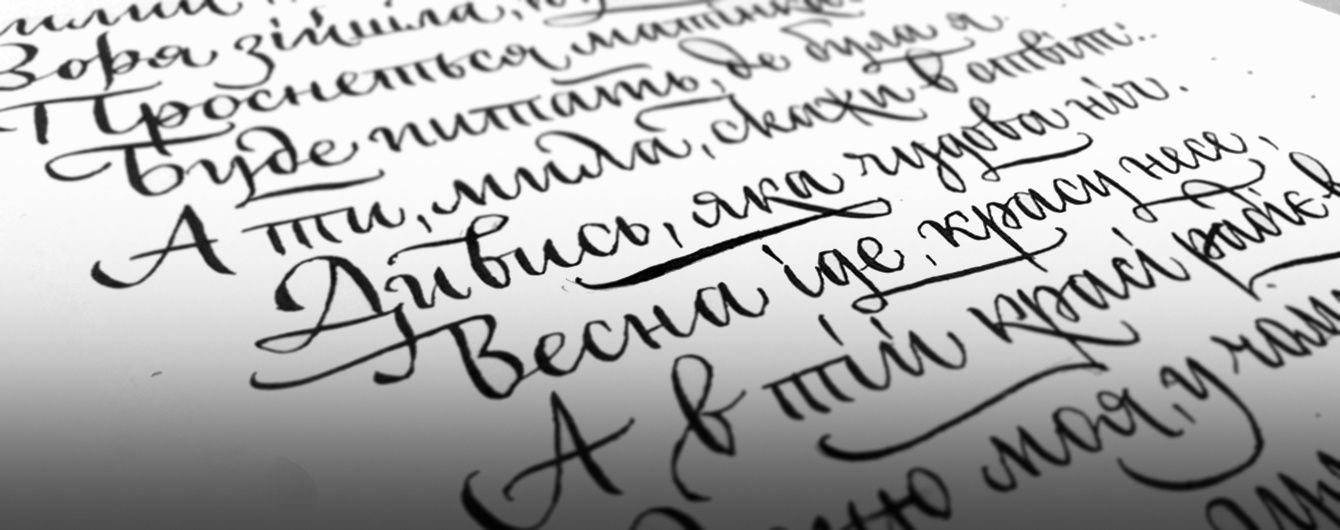 Зоря зійшла,
Проснеться матінка
Буде питать, де була я.
А ти, мила, скажи в отвіт..
Дивись, яка чудова ніч.
Весна іде, красу несе,
А в тій красі радіє
моя, у